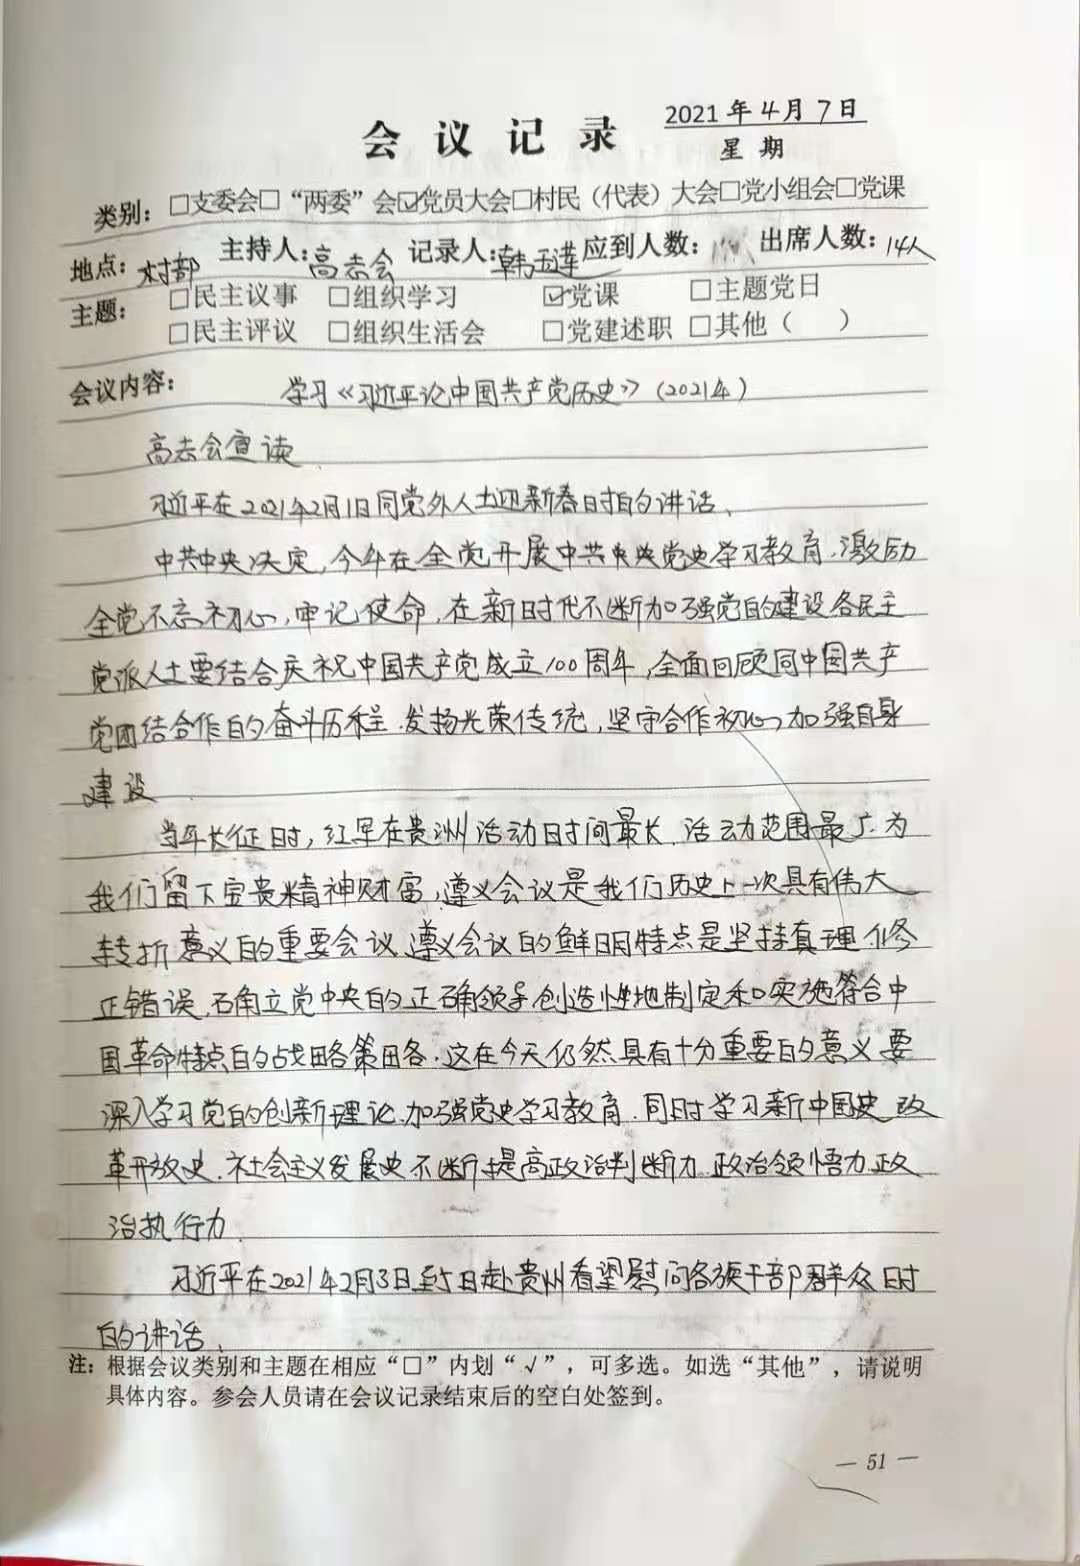 会议记录
2021年4月7日
星期
类别：□支委会□“两委”会☑党员大会□村民（代表）大会□党小组会□党课
地点：村部 主持人：高志会 记录人：韩玉莲 应到人数： 出席人数：14人
主题：□民主议事 □组织学习 ☑党课 □主题党日
□民主评议 □组织生活会 □党建述职 □其他（ ）
会议内容： 学习《习近平论中国共产党历史》（2021年）
高志会宣读
习近平在2021年2月1日同党外人士迎新春时的讲话、
中共中央决定，今年在全党开展中共中央党史学习教育、激励
全党不忘初心，牢记使命，在新时代不断加强党的建设各民主
党派人士要结合庆祝中国共产党成立100周年，全面回顾同中国共产
党团结合作的奋斗历程、发扬光荣传统，坚守合作初心，加强自身
建设
当年长征时，红军在贵洲活动时间最长、活动范围最广、为
我们留下宝贵精神财富，遵义会议是我们历史上一次具有伟大
转折意义的重要会议、遵义会议的鲜明特点是坚持真理、修
正错误、确立党中央的正确领导，创造性地制定和实施符合中
国革命特点的战略策略、这在今天仍然具有十分重要的意义 要
深入学习党的创新理论、加强党史学习教育、同时学习新中国史、改
革开放史、社会主义发展史不断提高政治判断力、政治领悟力、政
治执行力、
习近平在2021年2月3日至5日赴贵州看望慰问各族干部群众时
的讲话、
注：根据会议类别和主题在相应“□”内划“√”，可多选。如选“其他”，请说明
具体内容。参会人员请在会议记录结束后的空白处签到。
— 51 —